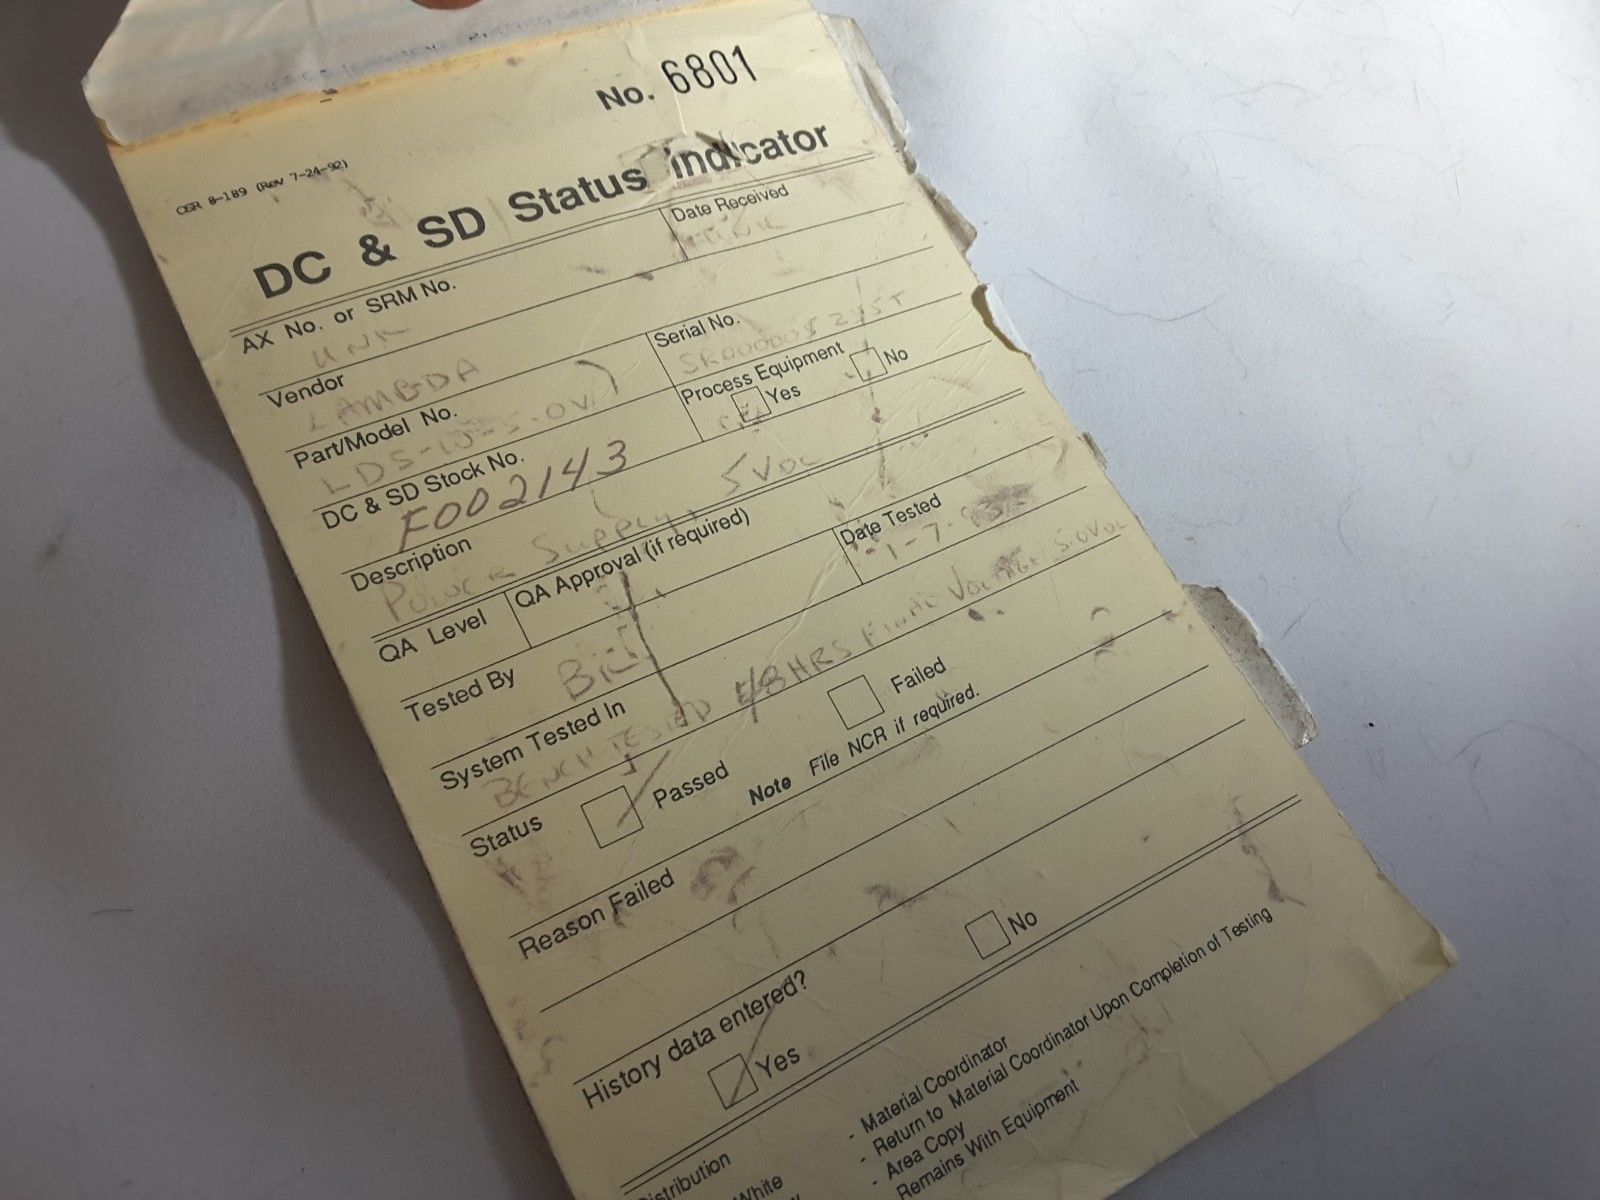 No. 6801
OSR 8-189 (Rev 7-24-92)
DC & SD Status Indicator
AX No. or SRM No.
Date Received
UNK
UNK
Vendor
Serial No.
LAMBDA
Part/Model No.
Process Equipment
Yes
No
LDS-10-5-OV
DC & SD Stock No.
F002143
Description
Power Supply, 5VDC
QA Level
QA Approval (if required)
Tested By
Date Tested
Bill
System Tested In
BENCH TESTED 48HRS FINAL VOLTAGE 5.0VDC
Status
Passed
Failed
Note File NCR if required.
Reason Failed
History data entered?
Yes
No
Distribution
White
- Material Coordinator
- Return to Material Coordinator Upon Completion of Testing
- Area Copy
- Remains With Equipment